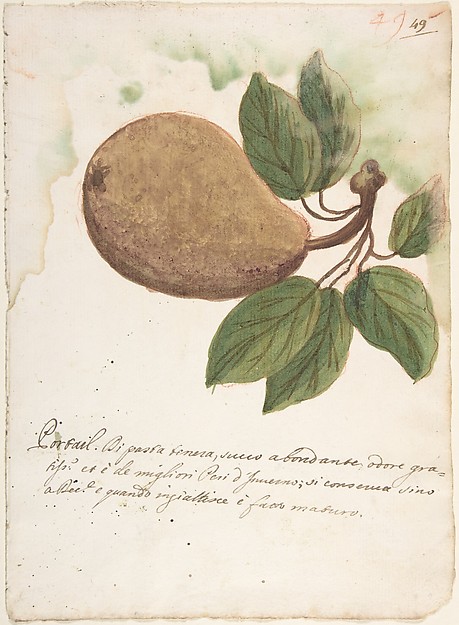 49 49
Portail. Di pasta tenera, succo abondante, odore gra=
tiss.º et è de migliori Peri d'Inverno; si conserva sino
a e quando ingiallisce è fatto maturo.